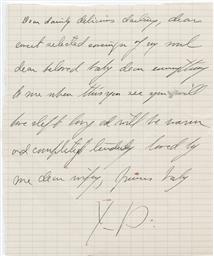 dear
sweet selected of my soul
dear beloved baby dear everything
to me when this you see you will
have slept long and will be warm
and completely tenderly loved by
me dear wifey, baby